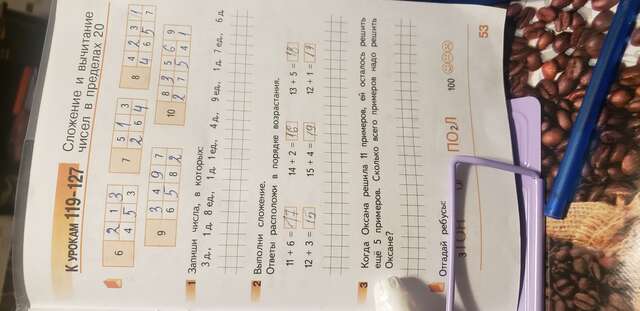 К УРОКАМ 119–127
Сложение и вычитание
чисел в пределах 20
6 2 1 3
4 5 3
7 5 1 3
2 6 4
8 4 2 3 1
4 6 5 7
9 3 4 9 7
6 5 8 2
10 8 3 5 6 9
2 7 5 4 1
1 Запиши числа, в которых:
3 д., 1 д. 8 ед., 1 д. 1 ед., 4 д., 9 ед., 1 д. 7 ед., 6 д.
2 Выполни сложение.
Ответы расположи в порядке возрастания.
11 + 6 = 17 14 + 2 = 16 13 + 5 = 18
12 + 3 = 15 15 + 4 = 19 12 + 1 = 13
3 Когда Оксана решила 11 примеров, ей осталось решить
ещё 5 примеров. Сколько всего примеров надо решить
Оксане?
Отгадай ребусы:
ПО2Л 100
53